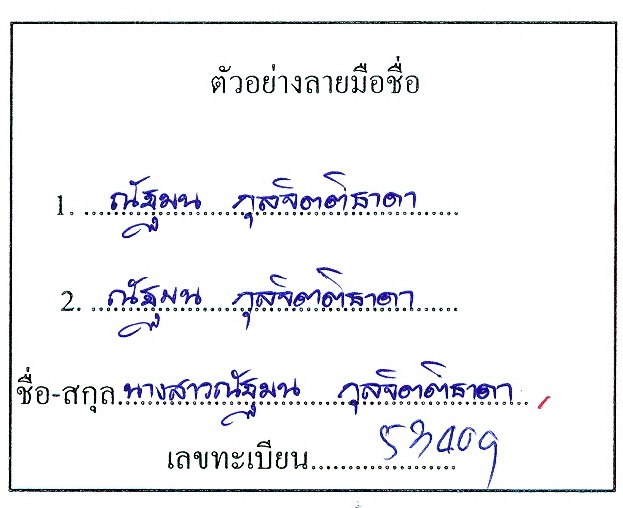 ตัวอย่างลายมือชื่อ
1. ณัฐมน กุลจิตติธาดา
2. ณัฐมน กุลจิตติธาดา
ชื่อ-สกุล นางสาวณัฐมน กุลจิตติธาดา
เลขทะเบียน 53409